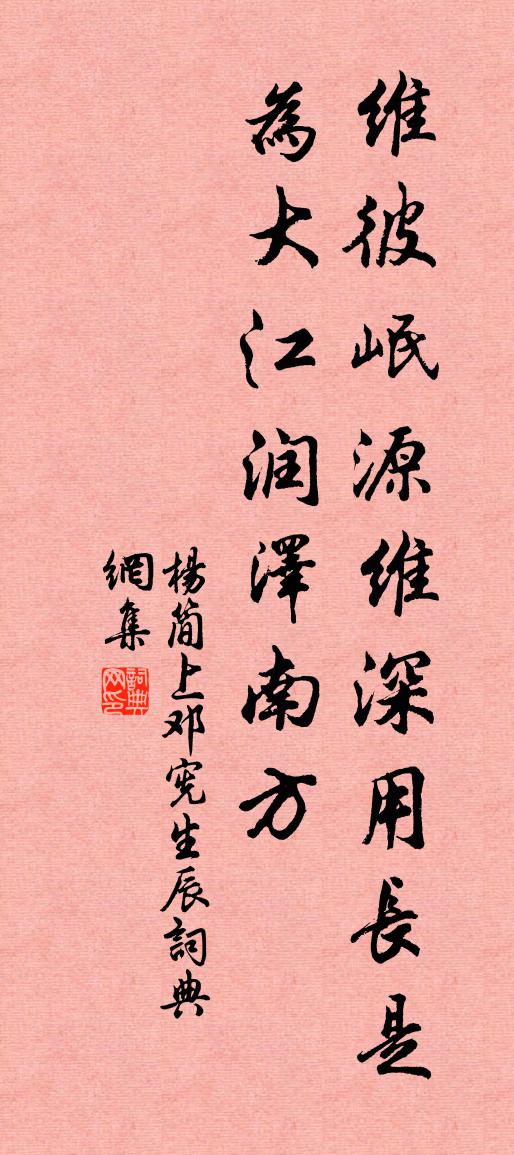 維彼岷源維深用長是
為大江润澤南方
楊简上邓宪生辰詞典
網集
詞典网印